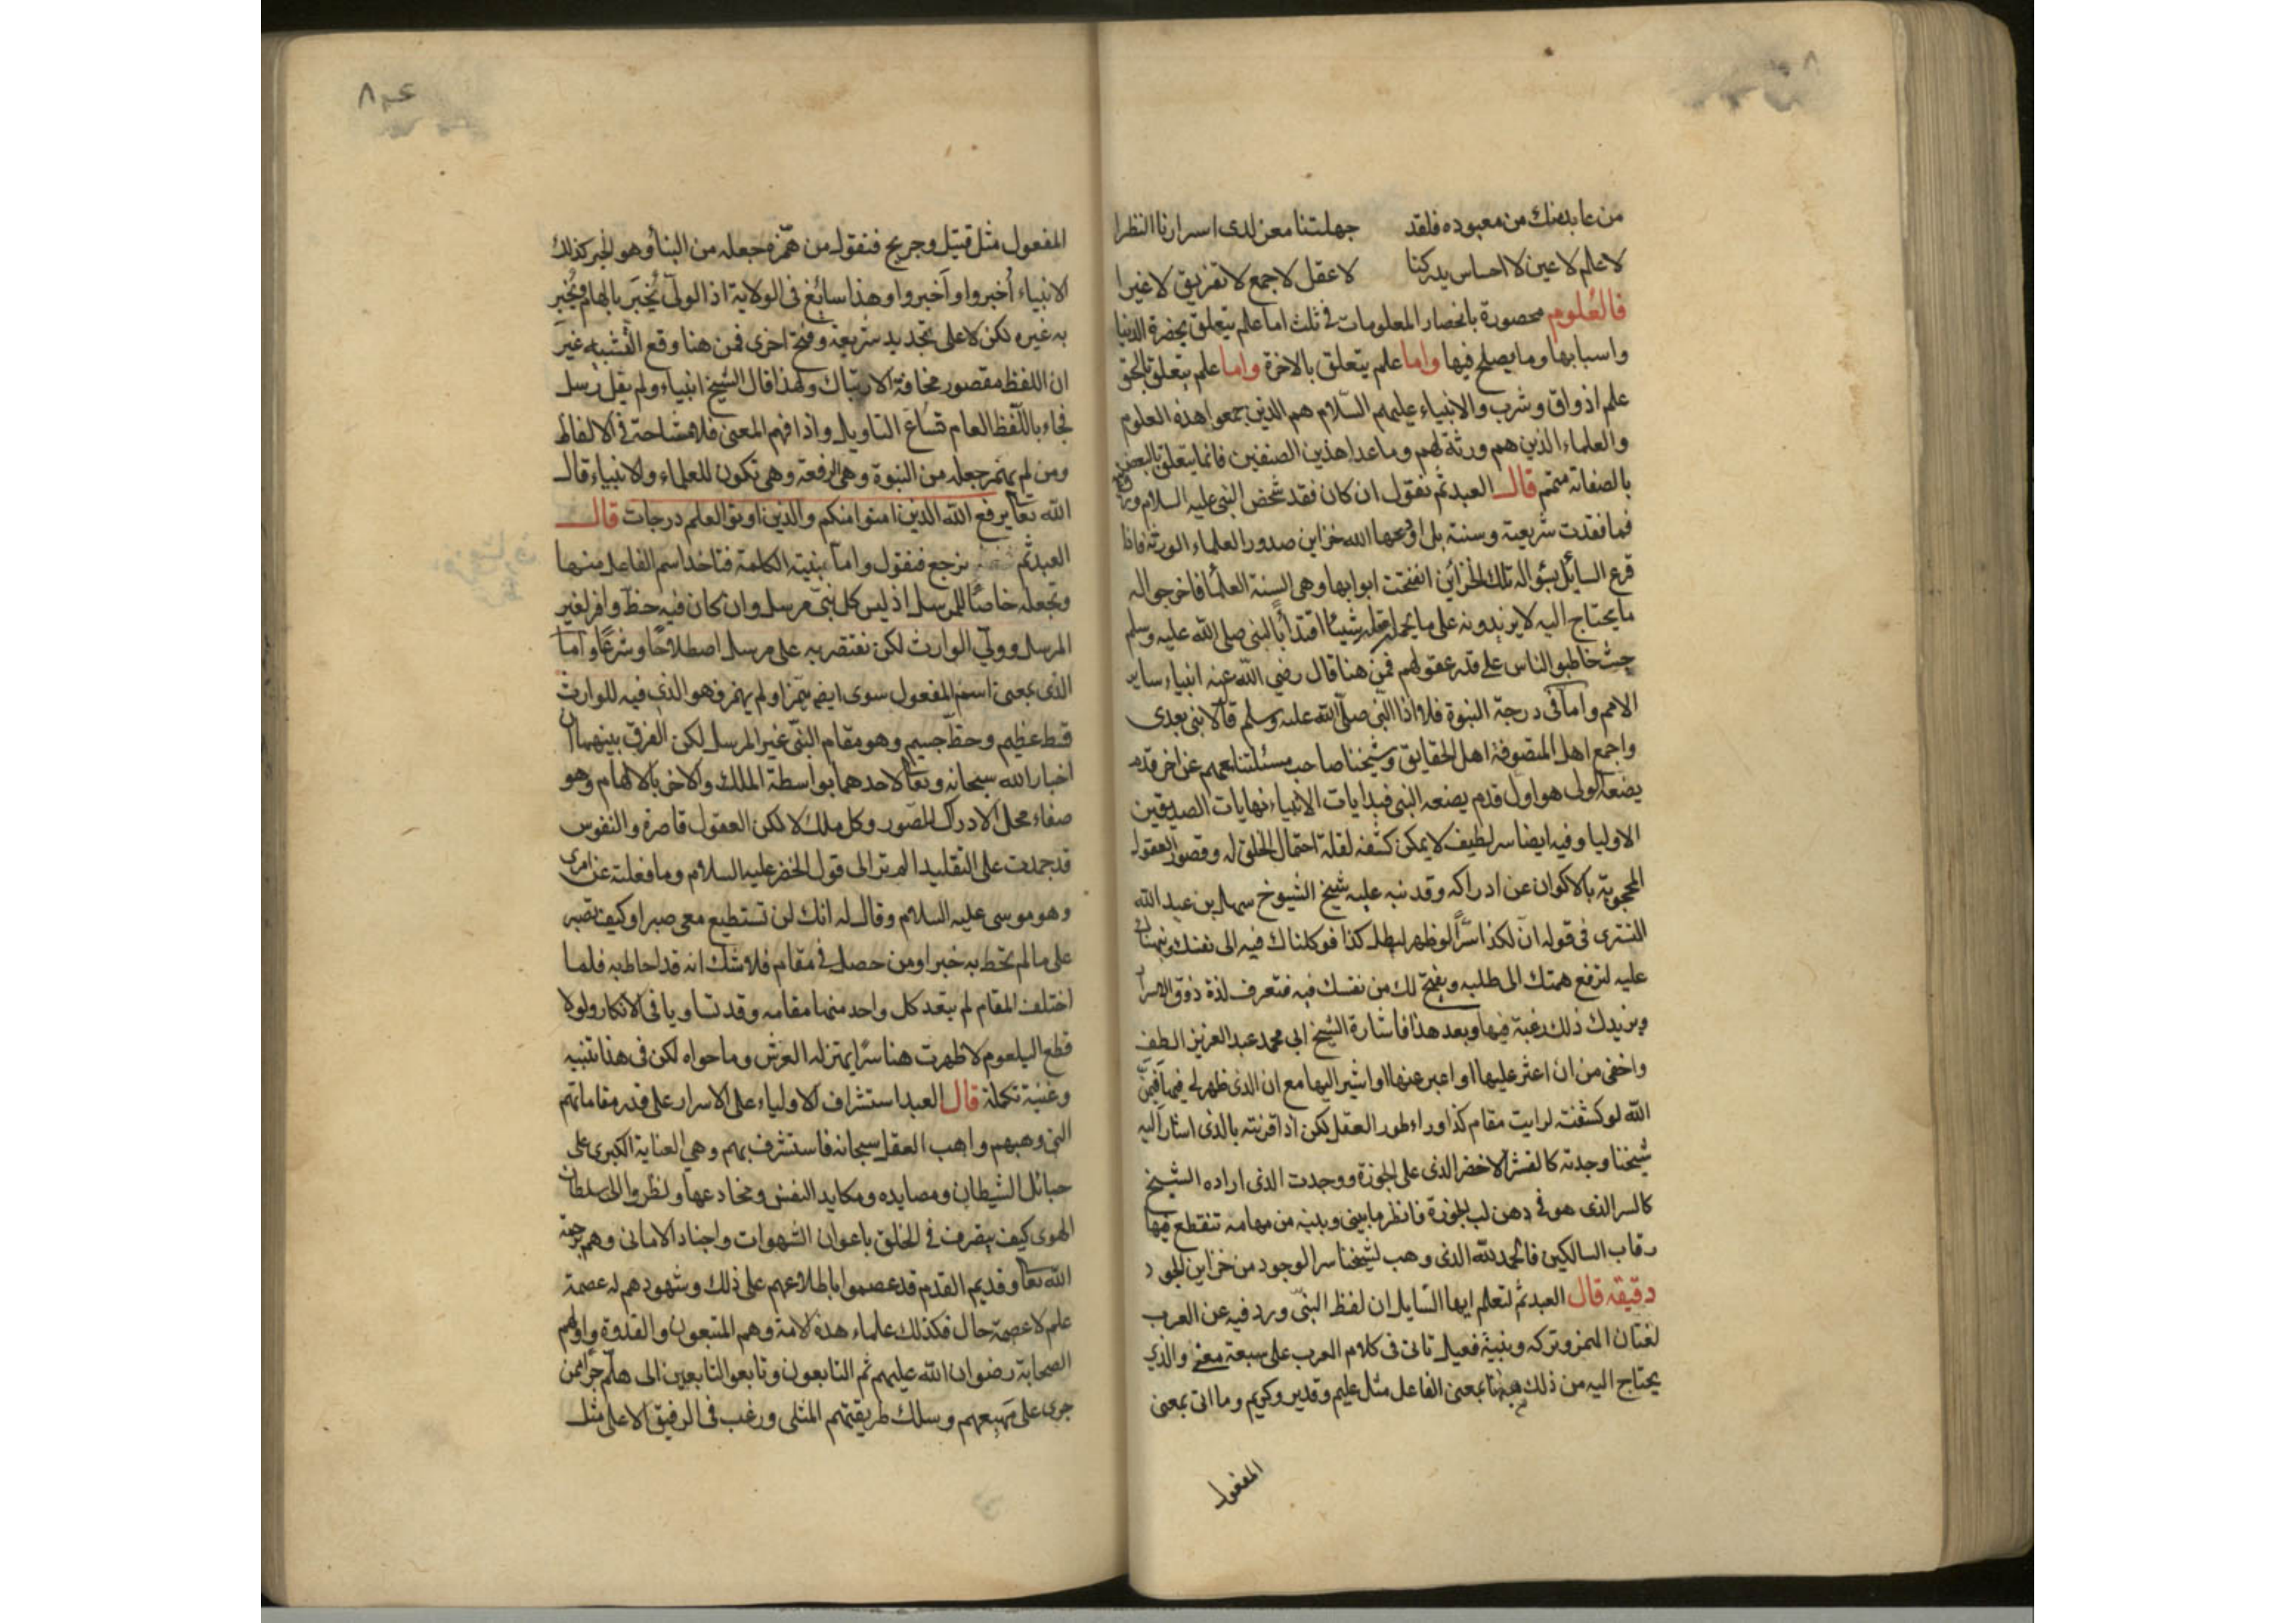 من عابد منك من معبوده فلقد جهلتنا معن لدى اسرارنا النظرا
لا علم لا عين لا احساس يدركنا لا عقل لا جمع لا تفريق لا غيرا
فالعلوم محصورة بانحصار المعلومات فى ثلث اما علم يتعلق بحضرة الدنيا
واسبابها وما يصلح فيها واما علم يتعلق بالاخرة واما علم يتعلق بالحق
علم اذواق وشرب والانبياء عليهم السلام هم الذين جمعوا هذه العلوم
والعلماء الذين هم ورثة لهم وما عدا هذين الصنفين فانما يتعلق بالبعض
بالصفاته متمم قال العبد ثم نقول ان كان فقد شخص النبى عليه السلام
فما فقدت شريعته وسنته بلى اودعها الله خزاين صدور العلماء الورثة فاذا
قرع السايل بسؤاله تلك الخزائن انفتحت ابوابها وهى السنة العلماء فاخرجوا له
ما يحتاج اليه لا يزيدونه على ما يحمله عقله شيئا اقتداء بالنبى صلى الله عليه وسلم
حيث خاطبوا الناس على قدر عقولهم فمن هنا قال رضى الله عنه انبياء ساير
الامم واما فى درجة النبوة فلا اذ النبى صلى الله عليه وسلم قال لا نبى بعدى
واجمع اهل المتصوفة اهل الحقايق وشيخنا صاحب مسئلتنا معهم عن اخر قدم
يضعه الولى هو اول قدم يضعه النبى فبدايات الانبياء نهايات الصديقين
الاوليا وفيه ايضا سر لطيف لا يمكن كشفه لقلة احتمال الخلق له وقصور العقول
المحجوبة بالاكوان عن ادراكه وقد نبه عليه شيخ الشيوخ سهل بن عبد الله
التسترى فى قوله ان لكذا سرا لو ظهر لبطل كذا فوكلناك فيه الى نفسك
عليه لترفع همتك الى طلبه ويفتح لك من نفسك فيه فتعرف لذة ذوق الاسرار
ويزيدك ذلك رغبة فيها وبعد هذا فاشارة الشيخ ابى محمد عبد العزيز الطف
واخفى من ان اعثر عليها او اعبر عنها او اشير اليها مع ان الذى ظهر لى فيها
الله لو كشفته لرايت مقام كذا وراء طور العقل لكن اذا قرنته بالذى اشار اليه
شيخنا وجدته كالقشر الاخضر الذى على الجوزة ووجدت الذى اراده الشيخ
كالسر الذى هو فى دهن لب الجوزة فانظر ما بينى وبينه من مهامه تنقطع فيها
رقاب السالكين فالحمد لله الذى وهب لشيخنا سر الوجود من خزاين الجود
دقيقة قال العبد ثم لتعلم ايها السايل ان لفظ النبى ورد فيه عن العرب
لغتان الهمز وتركه وبنية فعيل تاتى فى كلام العرب على سبعة معنى والذى
يحتاج اليه من ذلك هنا بمعنى الفاعل مثل عليم وقدير وكريم وما اتى بمعنى
المفعول
عم ٨
المفعول مثل قتيل وجريح فنقول من همزه جعله من النبأ وهو الخبر كذلك
الانبياء أُخبروا وأَخبروا وهذا سائغ فى الولاية اذ الولى يُخبَر بالهام ويُخبِر
به غيره لكن لا على تجديد شريعة وفتح اخرى فمن هنا وقع التشبيه غير
ان اللفظ مقصور مخافة الارتباك ولهذا قال الشيخ انبياء ولم يقل رسل
فجاء باللفظ العام مساغ التاويل واذا فهم المعنى فلا مشاحة فى الالفاظ
ومن لم يهمز جعله من النبوة وهى الرفعة وهى تكون للعلماء والانبياء قال
الله تعا يرفع الله الذين امنوا منكم والذين اوتوا العلم درجات قال
العبد ثم نرجع فنقول واما بنية الكلمة فتاخذ اسم الفاعل منها
وتجعله خاصا للمرسل اذ ليس كل نبى مرسل وان كان فيه حظ وافر لغير
المرسل وولى الوارث لكن نقتصر به على مرسل اصطلاحا وشرعا واما
الذى بمعنى اسم المفعول سوى ايضا همز او لم يهمز فهو الذى فيه للوارث
قسط عظيم وحظ جسيم وهو مقام النبى غير المرسل لكن الفرق بينهما ان
اخبار الله سبحانه وتعا لاحدهما بواسطة الملك والاخر بالالهام وهو
صفاء محل الادراك للصور وكل ملك لا لكن العقول قاصرة والنفوس
قد جمدت على التقليد الم تر الى قول الخضر عليه السلام وما فعلته عن امرى
وهو موسى عليه السلام وقال له انك لن تستطيع معى صبرا وكيف تصبر
على ما لم تحط به خبرا ومن حصل فى مقام فلا شك انه قد احاط به فلما
اختلف المقام لم يتعد كل واحد منهما مقامه وقد تساويا فى الانكار ولولا
قطع البلعوم لاظهرت هنا سرا يهتز له العرش وما حواه لكن فى هذا تنبيه
وغنية تكملة قال العبد استشراف الاولياء على الاسرار على قدر مقاماتهم
التى وهبهم واهب العقل سبحانه فاستشرف بهم وهى العناية الكبرى على
حبائل الشيطان ومصايده ومكايد النفس ومخادعها ونظروا الى سلطان
الهوى كيف يتصرف فى الخلق باعوان الشهوات واجناد الامانى وهم برحمة
الله تعا وقديم القدم قد عصموا باطلاعهم على ذلك وشهودهم له عصمة
علم لا عصمة حال فكذلك علماء هذه الامة وهم المتبعون والقدوة واولهم
الصحابة رضوان الله عليهم ثم التابعون وتابعوا التابعين الى هلم جرا ممن
جرى على مهيعهم وسلك طريقتهم المثلى ورغب فى الرفيق الاعلى مثل